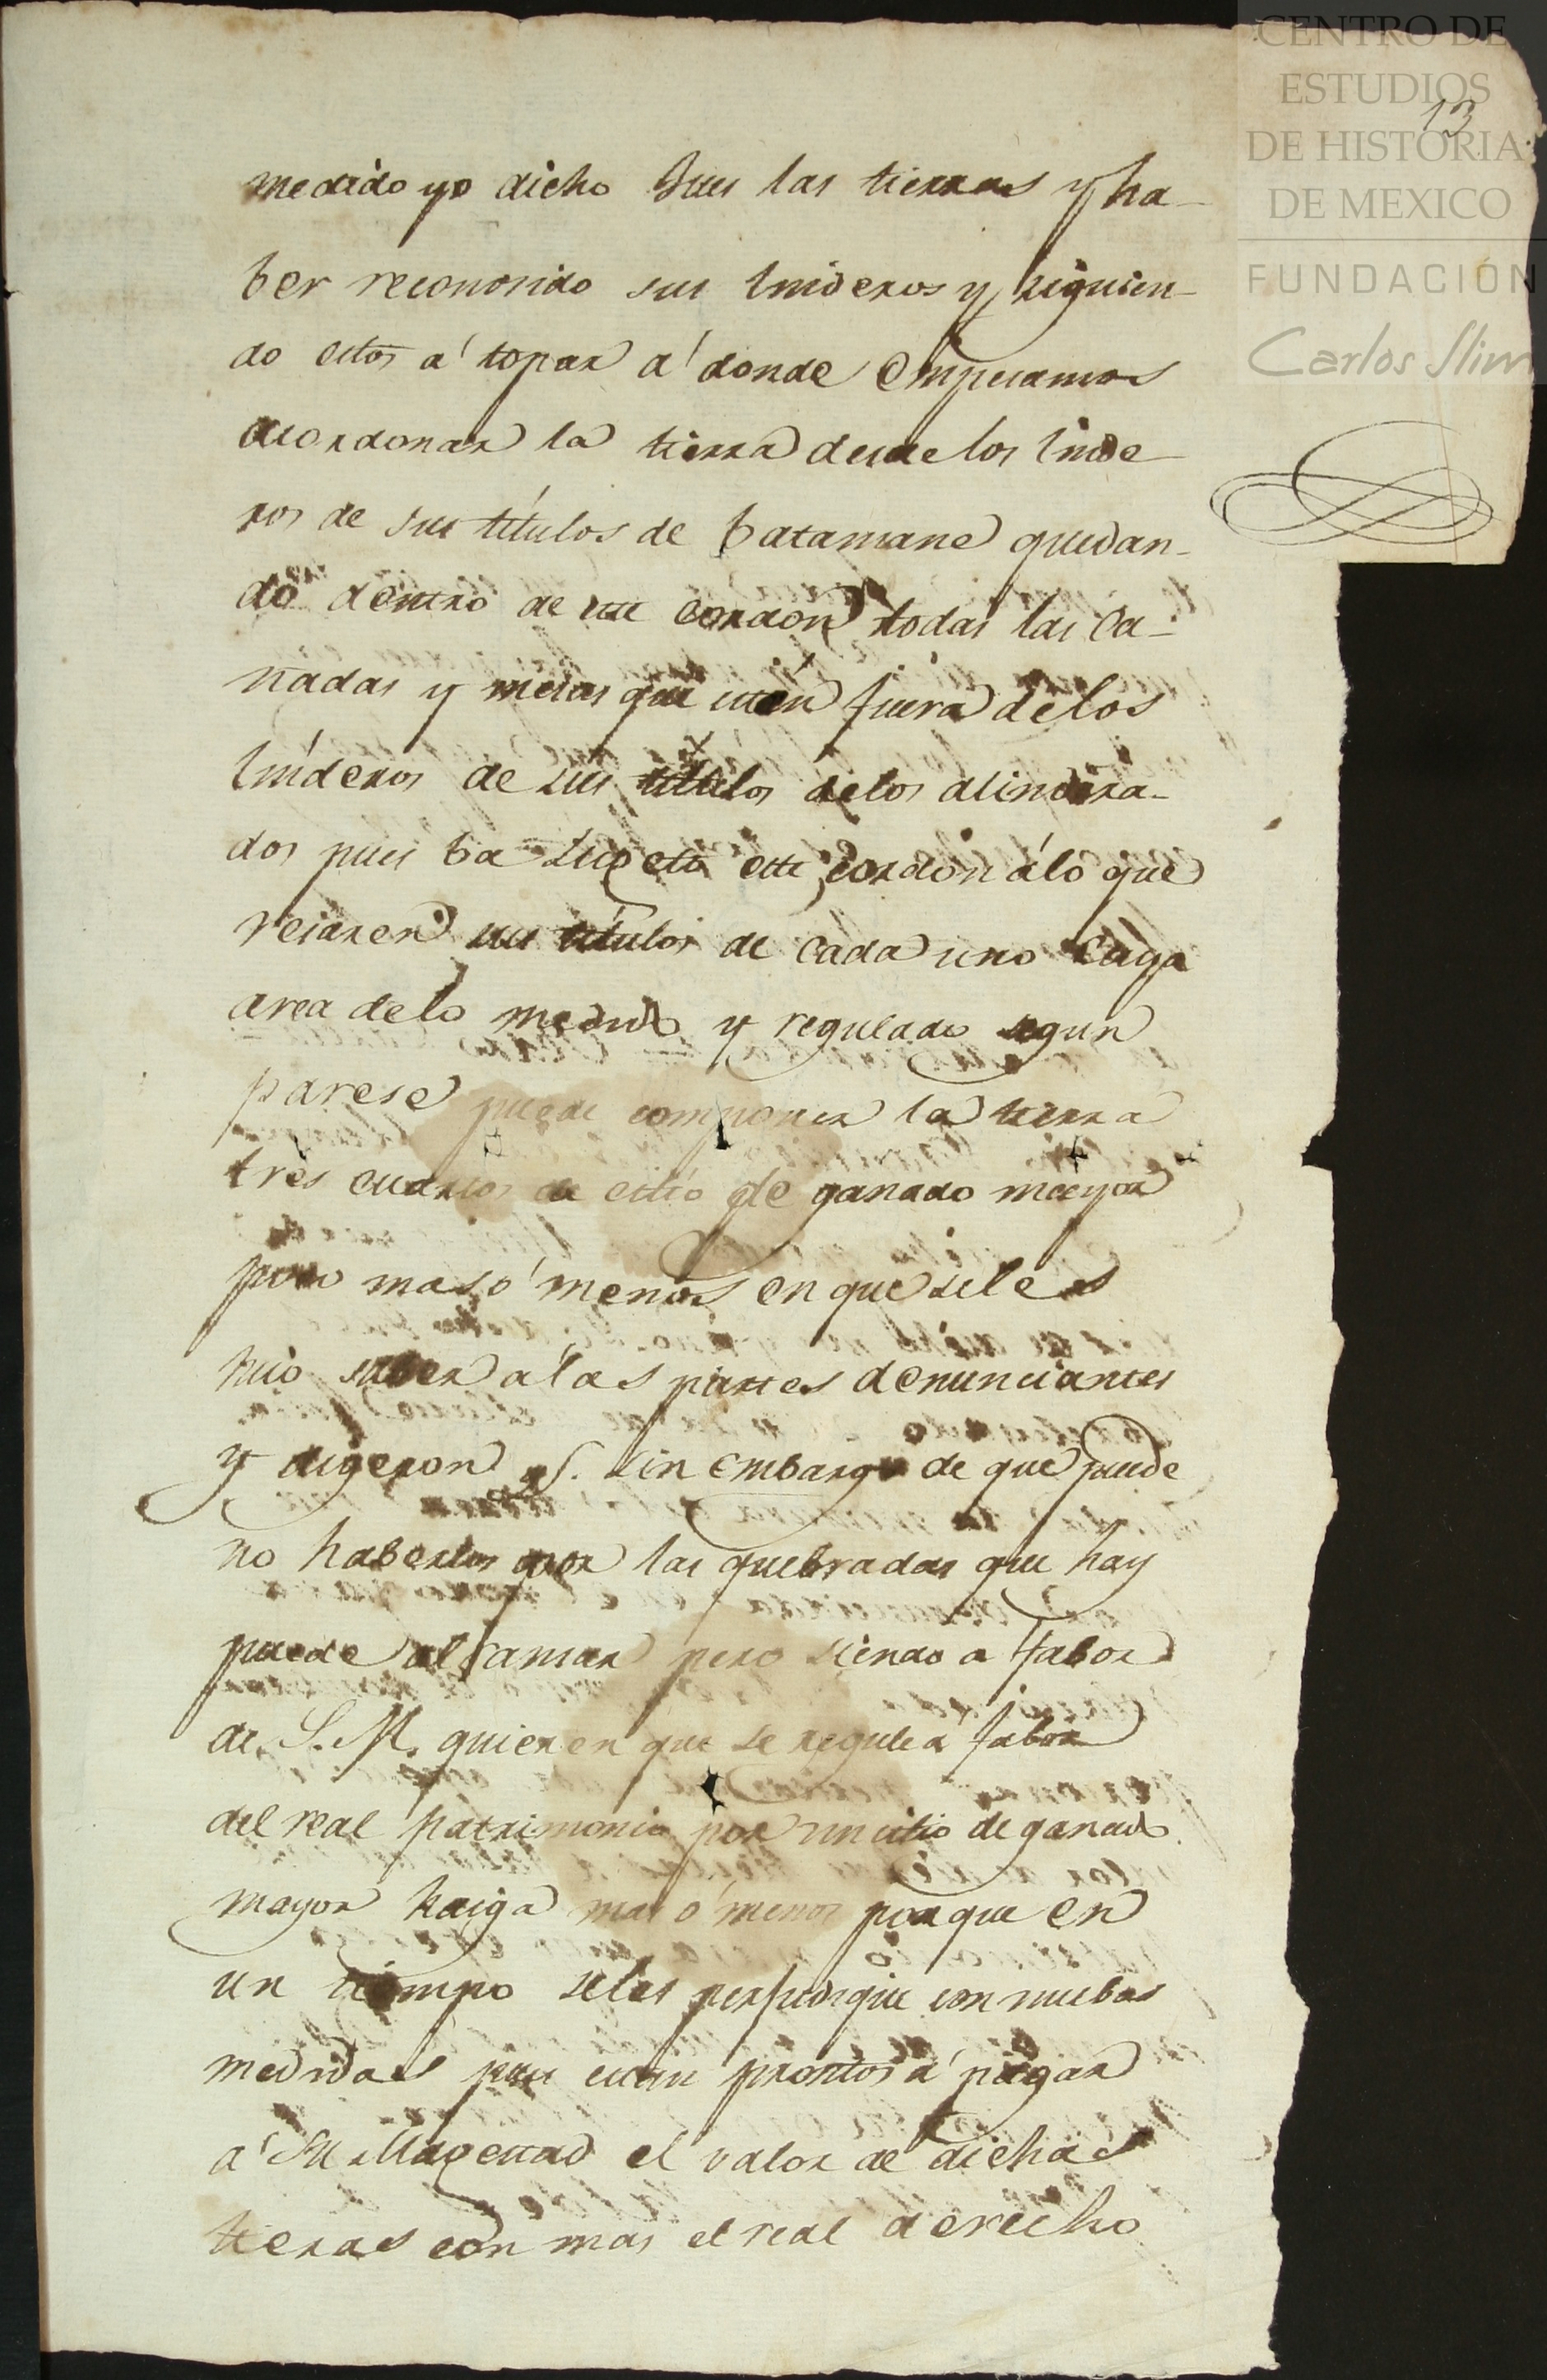 CENTRO DE
ESTUDIOS
DE HISTORIA
DE MEXICO
FUNDACIÓN
Carlos Slim
13
medido yo dicho Jues las tierras y ha-
ber reconosido sus linderos y siguien-
do estos á topar á donde empesamos
acordonar la tierra desde los linde
ros de sus títulos de batamane quedan-
do dentro de este cordon todas las ca-
ñadas y mesas que estén fuera de los
línderos de sus títulos de los alindera-
dos pues ba sugeto este cordón álo que
resaren sus títulos de cada uno cuya
area delo medido y regulado segun
parese puede componer la tierra
tres cuartos de citio de ganado mayor
poco mas ó menos en que seles
hiso saber alas partes denunciantes
y digeron qe. sin embargo de que puede
no haberlos por las quebradas que hay
puede alcansar pero siendo a fabor
de S. M. quieren que se regule á fabor
del real patrimonio por un citio de ganado
mayor haiga mas ó menos porque en
un tiempo seles perjudique con nuebas
medidas pues están prontos á pagar
a Su Magestad el valor de dichas
tieras con mas el real derecho